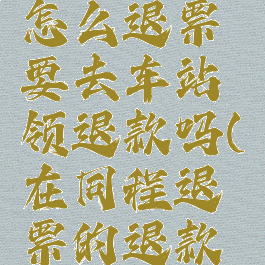 怎么退票
要去车站
领退款吗(
在同程退
票的退款